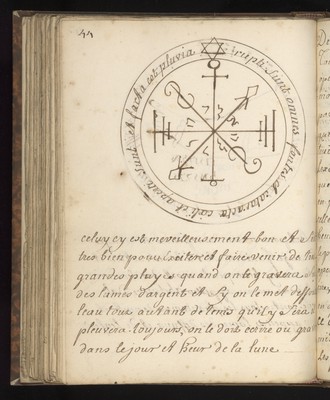 44
rupti sunt omnes fontes et cataracta cœli et aperta sunt et facta est pluvia
celuy cy est merveilleusement bon et
tres bien pour exiter et faire venir de
grandes pluyes quand on le gravera
des lames d'argent et sy on le met dess
leau tous autant de tems quil y sera
pleuvera toujours, on le doit ecrire ou gra
dans le jour et heur de la lune